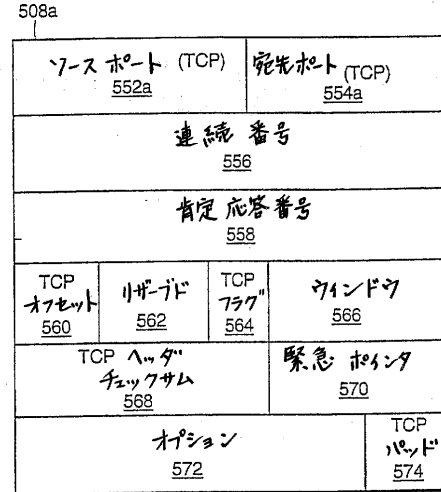 508a
ソース ポート (TCP)
552a
宛先ポート (TCP)
554a
連続 番号
556
肯定 応答番号
558
TCP
オフセット
560
リザーブド
562
TCP
フラグ
564
ウィンドウ
566
TCP ヘッダ
チェックサム
568
緊急 ポインタ
570
オプション
572
TCP
パッド
574